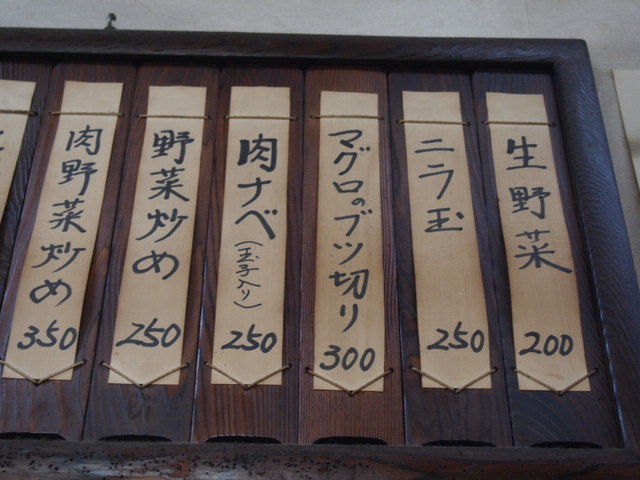 生野菜
200
ニラ玉
250
マグロのブツ切り
300
肉ナベ
(玉子入り)
250
野菜炒め
250
肉野菜炒め
350